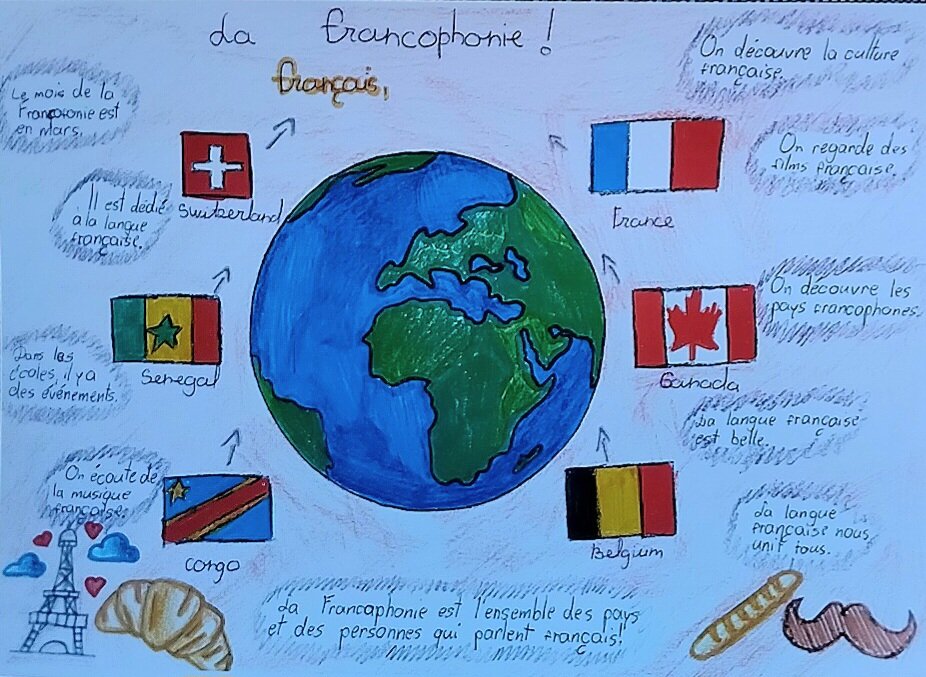 La francophonie !
français,
Le mois de la
Francoronie est
en Mars.
Il est dédié
a la langue
française.
Switzerland
Senegal
Dans les
écoles, il y a
des événements.
On écoute de
la musique
française.
congo
On découvre la culture
française.
On regarde des
films française.
France
On découvre les
pays francophones.
Canada
La langue française
est belle.
Belgium
La langue
française nous
unit tous.
La Francophonie est l'ensemble des pays
et des personnes qui parlent français!